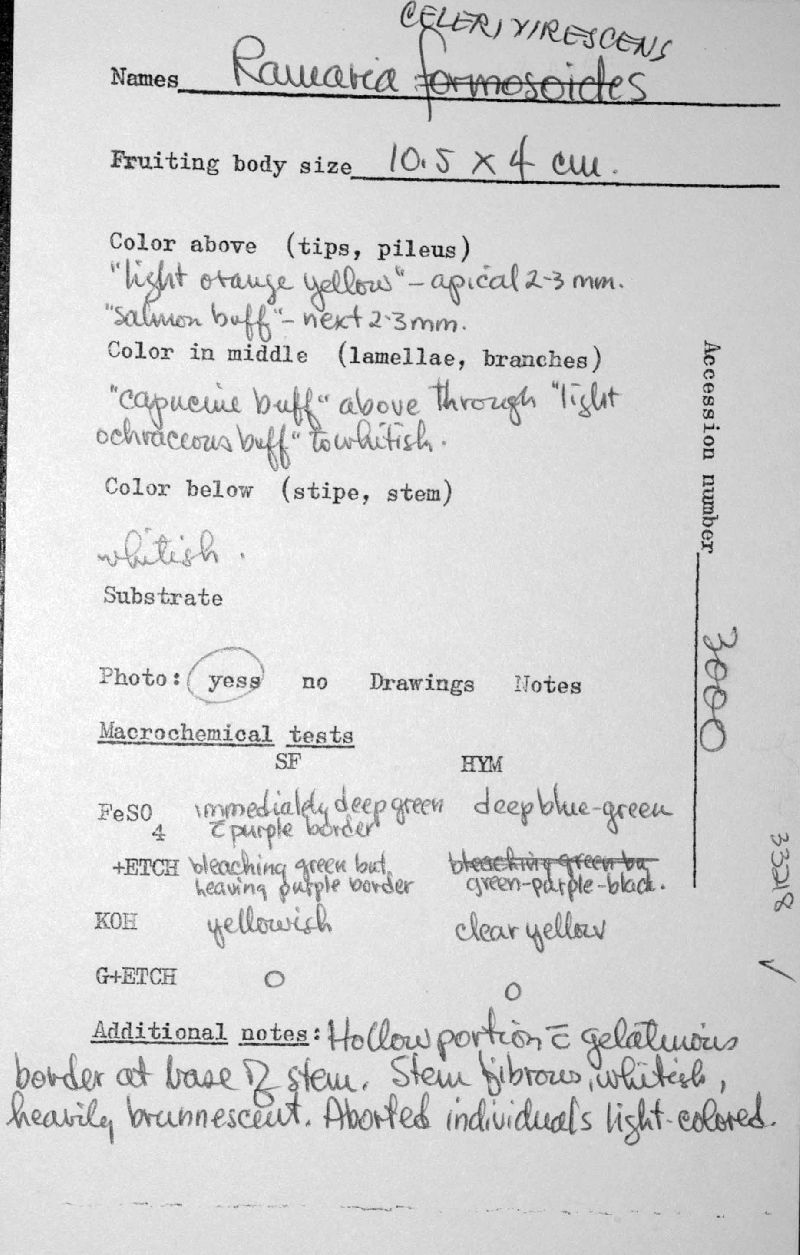 CELERIVIRESCENS
Names Ramaria formosoides
Fruiting body size 10.5 x 4 cm.
Color above (tips, pileus)
"light orange yellow" - apical 2-3 mm.
"salmon buff" - next 2-3 mm.
Color in middle (lamellae, branches)
"capucine buff" above through "light
ochraceous buff" to whitish.
Color below (stipe, stem)
whitish.
Substrate
Photo: yess no Drawings Notes
Macrochemical tests
SF HYM
FeSO4 immediately deep green deep blue-green
c̄ purple border
+ETCH bleaching green but bleaching green bu
heaving purple border green-purple-black.
KOH yellowish clear yellow
G+ETCH O O
Additional notes: Hollow portion c̄ gelatinous
border at base of stem. Stem fibrous, whitish,
heavily brunnescent. Aborted individuals light-colored.
Accession number 3000
33218 ✓